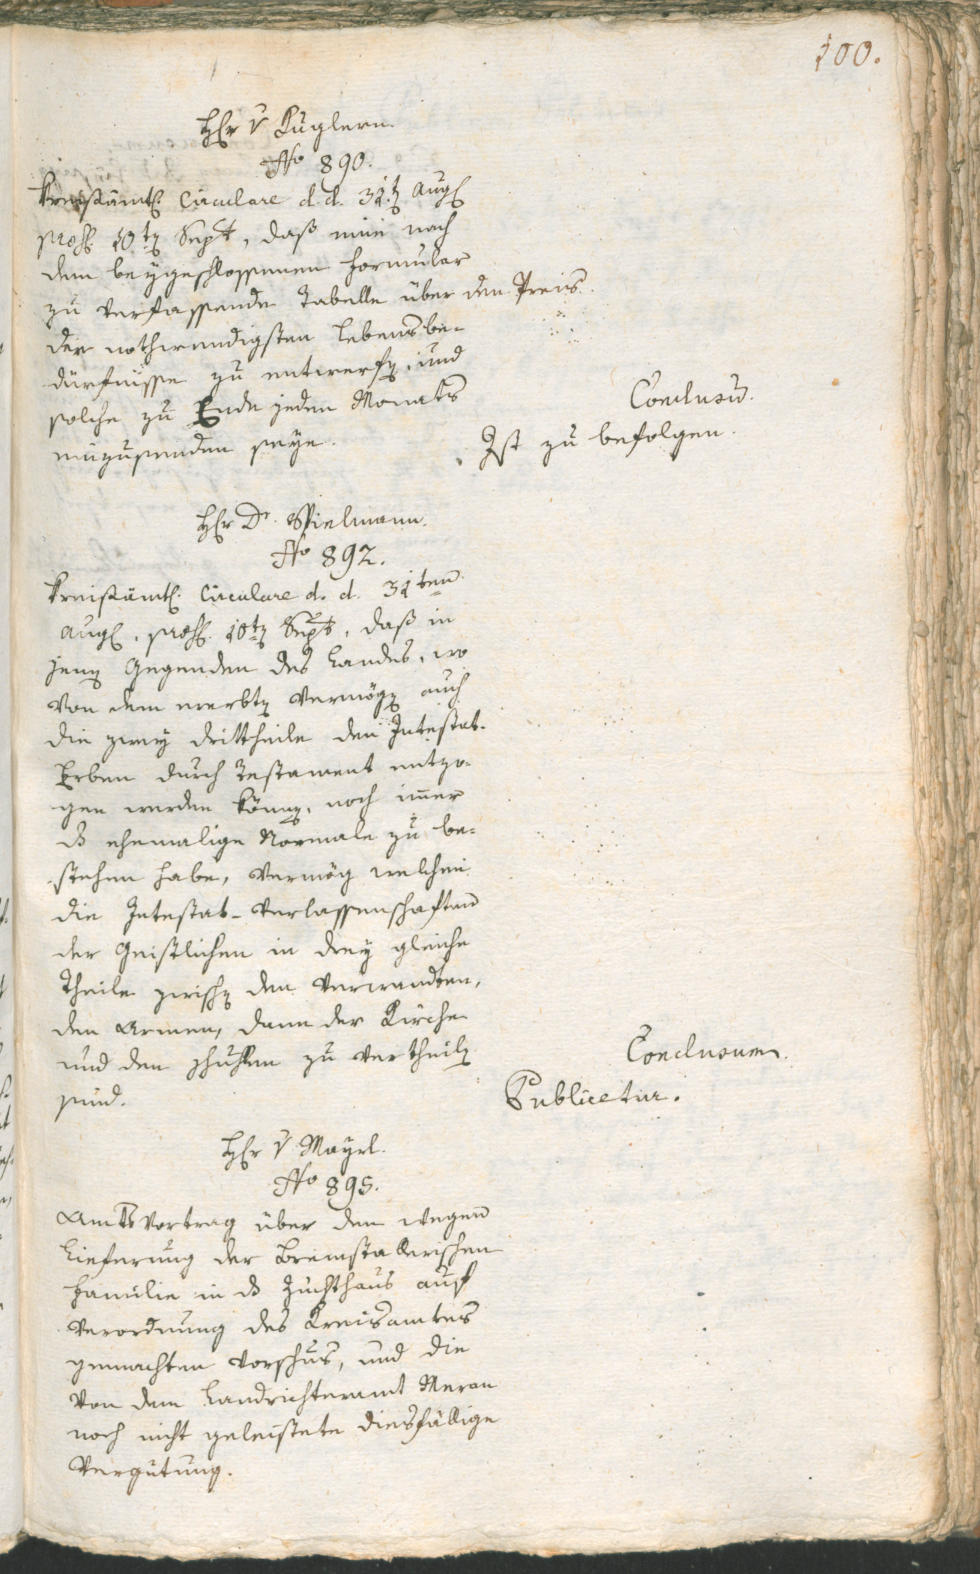 100.
Hr v Kuglern.
No 890.
Kreisämtl. Circulare d. d. 31.t Aug.
præs. 10t Sept, daß eine nach
dem beygeschlossenen Formular
zu verfassende Tabelle über den Preis
der nothwendigsten Lebensbe-
dürfnisse zu entwerfen, und
solche zu Ende jeden Monats
einzusenden seye.
Conclusum.
Ist zu befolgen.
Hr Dr. Spielmann.
No 892.
Kreisämtl. Circulare d. d. 31ten
Aug., præs. 10t Sept, daß in
jenen Gegenden des Landes, wo
von dem ererbten Vermögen auch
die zwey drittheile den Intestat-
Erben durch Testament entzo-
gen werden können, noch immer
das ehemalige Normale zu be-
stehen habe, vermög welchen
die Intestat-Verlassenschaften
der Geistlichen in drey gleiche
Theile zwischen den Verwandten,
den Armen, dann der Kirche
und den Schullen zu vertheilen
sind.
Conclusum.
Publicetur.
Hr v Mayrl.
No 895.
Amtsvortrag über den wegen
Lieferung der Bremstallerischen
Familie in das Zuchthaus auf
Verordnung des Kreisamtes
gemachten Vorschus, und die
von dem Landrichteramt Meran
noch nicht geleistete diesfällige
Vergütung.